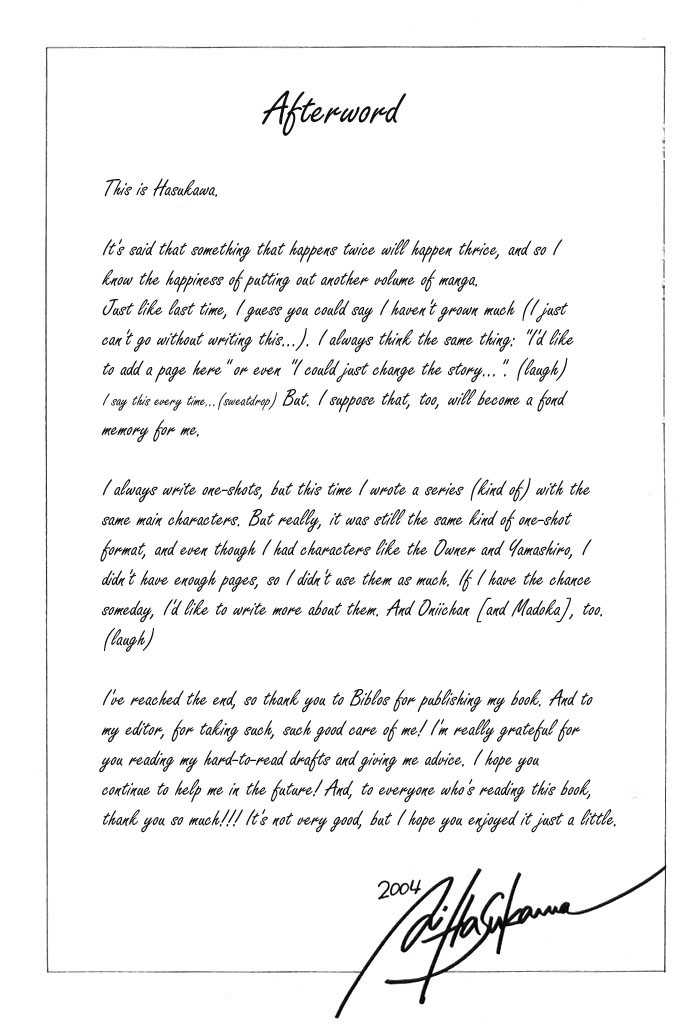 Afterword
This is Hasukawa.
It's said that something that happens twice will happen thrice, and so I
know the happiness of putting out another volume of manga.
Just like last time, I guess you could say I haven't grown much (I just
can't go without writing this...). I always think the same thing: "I'd like
to add a page here" or even "I could just change the story...". (laugh)
I say this every time...(sweatdrop) But. I suppose that, too, will become a fond
memory for me.
I always write one-shots, but this time I wrote a series (kind of) with the
same main characters. But really, it was still the same kind of one-shot
format, and even though I had characters like the Owner and Yamashiro, I
didn't have enough pages, so I didn't use them as much. If I have the chance
someday, I'd like to write more about them. And Oniichan [and Madoka], too.
(laugh)
I've reached the end, so thank you to Biblos for publishing my book. And to
my editor, for taking such, such good care of me! I'm really grateful for
you reading my hard-to-read drafts and giving me advice. I hope you
continue to help me in the future! And, to everyone who's reading this book,
thank you so much!!! It's not very good, but I hope you enjoyed it just a little.
2004
Ai Hasukawa